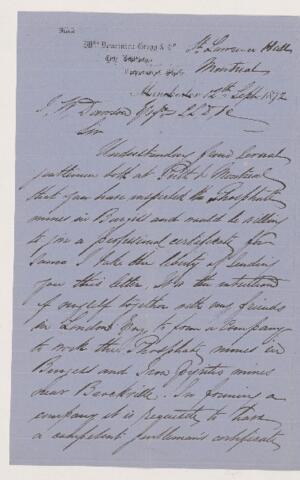 St. Lawrence Hall
Montreal
Manchester 12th Sept 1872
J. W. Dawson Esqre LLD &c
Sir
Understanding from several
gentlemen both at Perth & Montreal
that you have inspected the Phosphate
mines in Burgess and would be willing
to give a professional certificate for
same I take the liberty of sending
you this letter. It is the intention
of myself together with my friends
in London Eng to form a Company
to work the Phosphate mines in
Burgess and Iron Pyrites mines
near Brockville. In forming a
company it is requisite to have
a competent gentleman's certificate